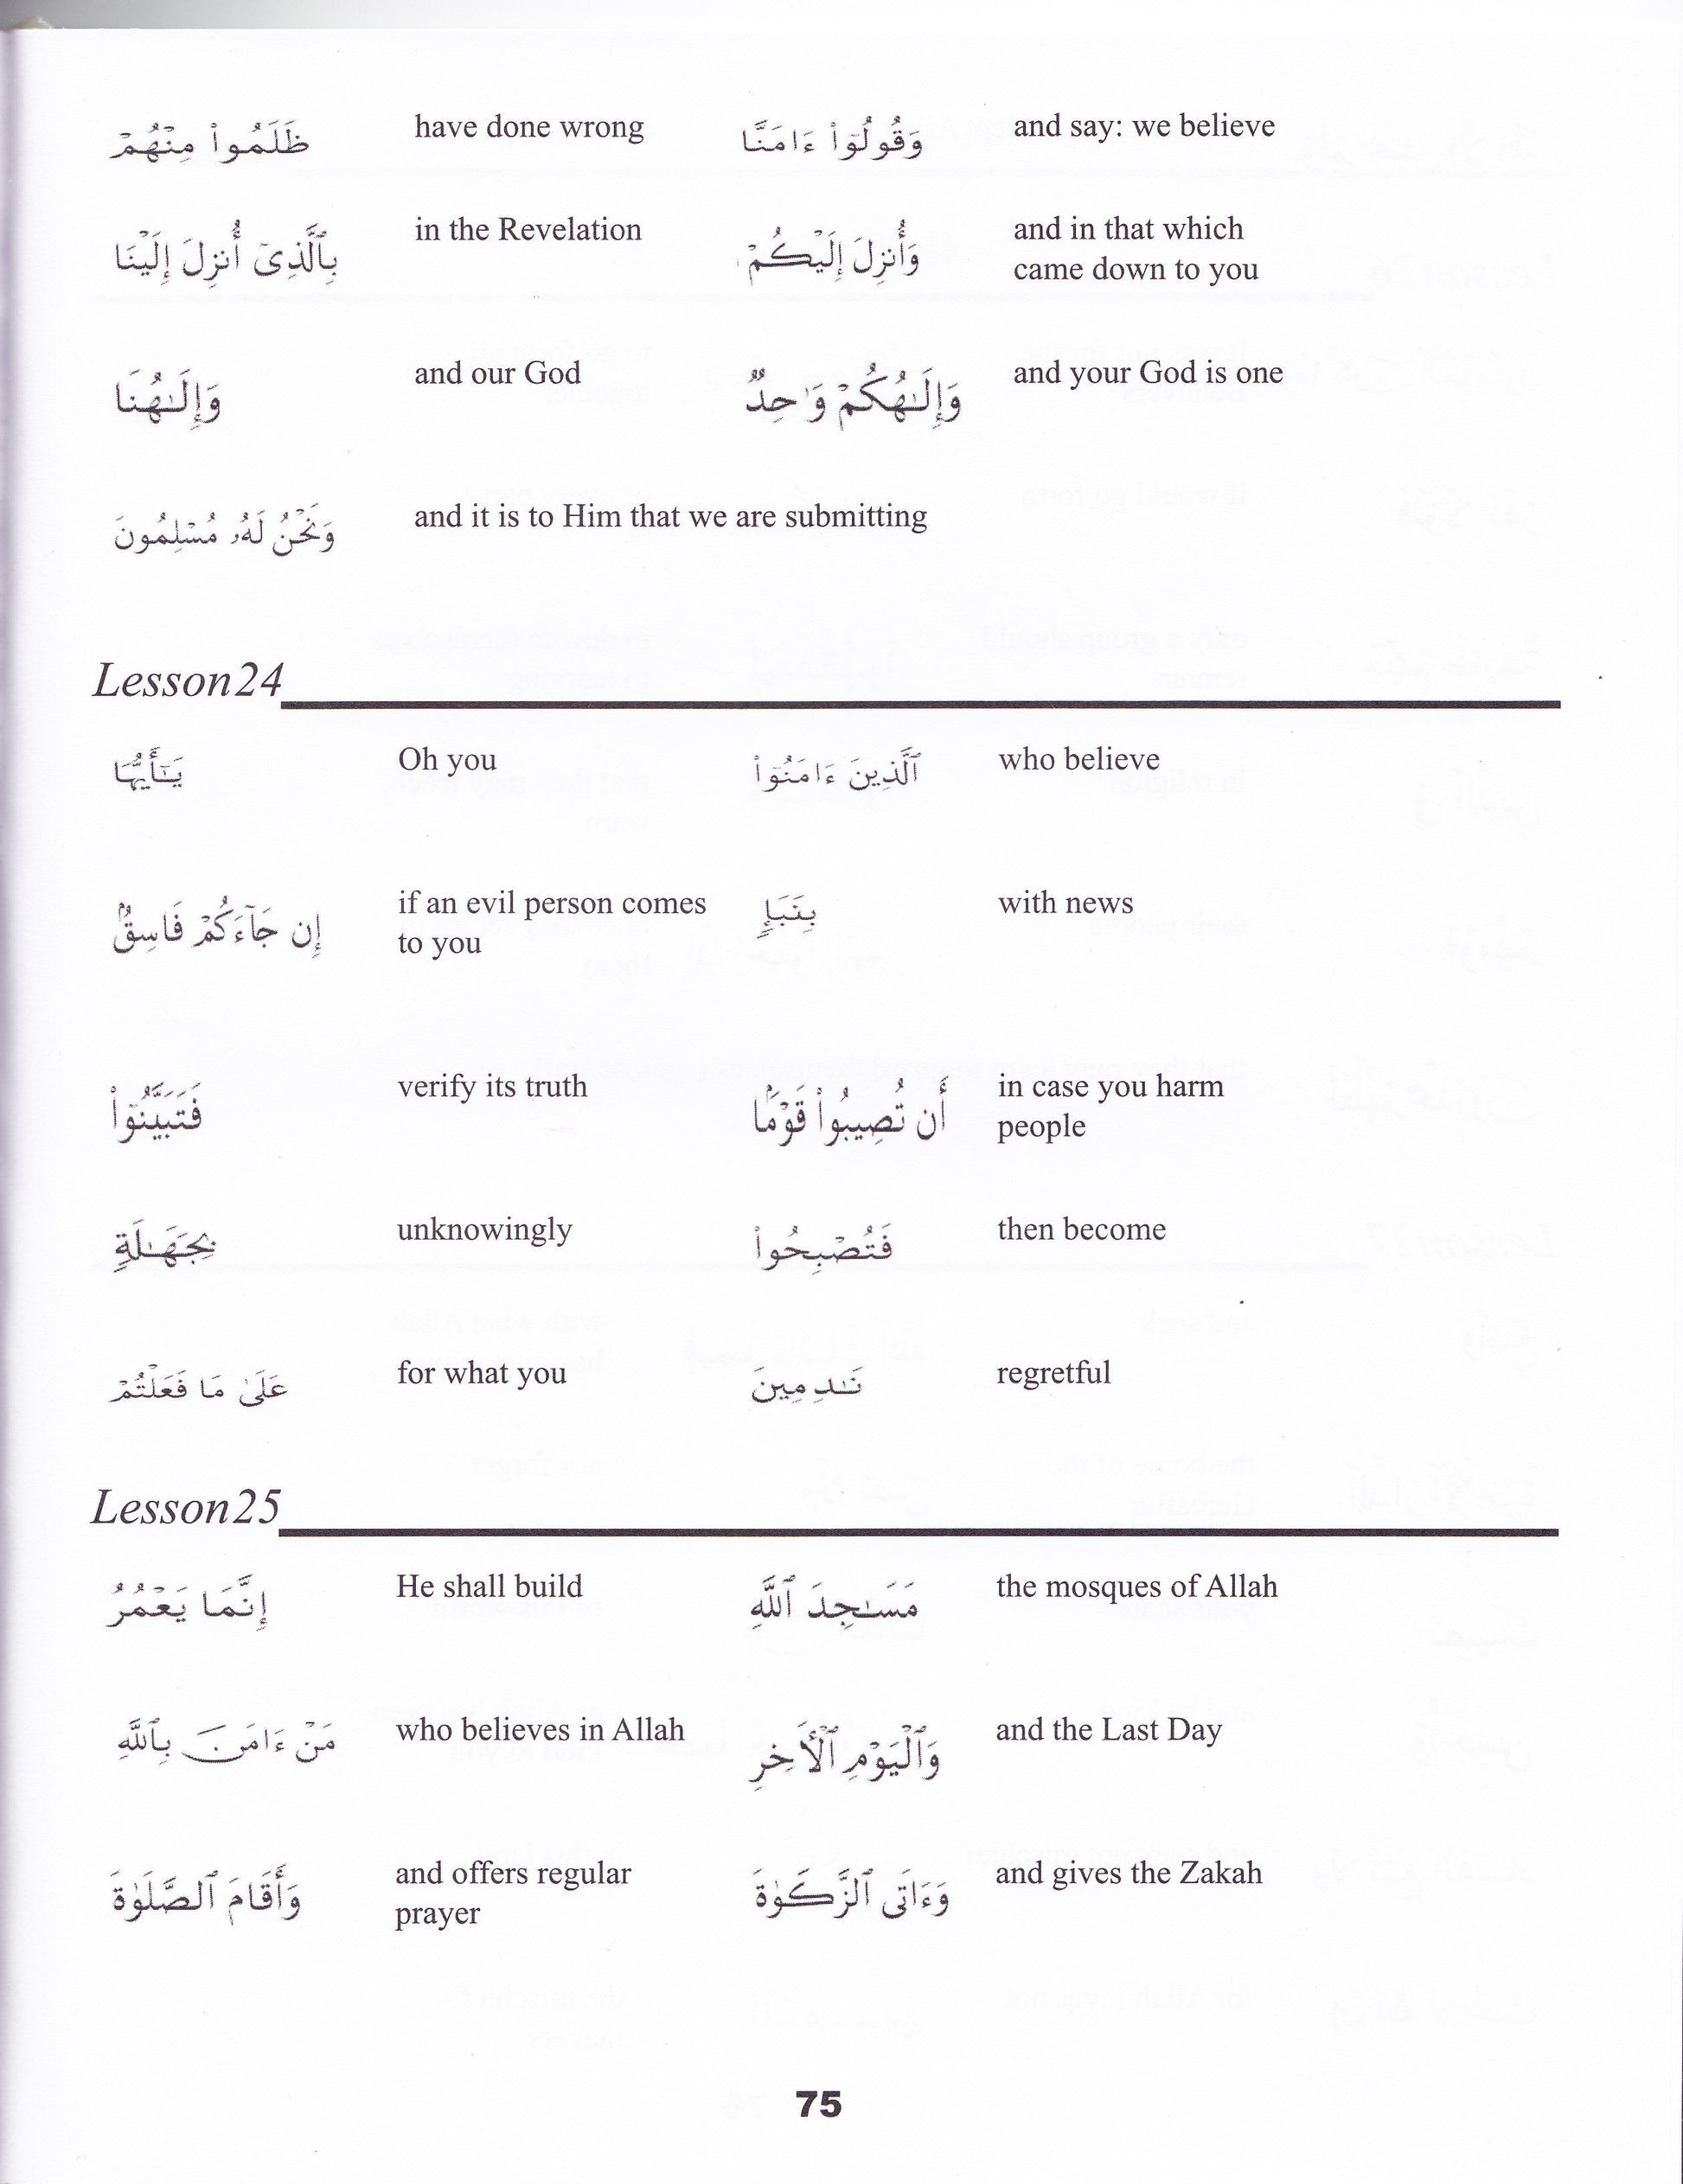 ظَلَمُوا۟ مِنْهُمْ have done wrong وَقُولُوٓا۟ ءَامَنَّا and say: we believe
بِٱلَّذِىٓ أُنزِلَ إِلَيْنَا in the Revelation وَأُنزِلَ إِلَيْكُمْ and in that which
came down to you
وَإِلَـٰهُنَا and our God وَإِلَـٰهُكُمْ وَٰحِدٌ and your God is one
وَنَحْنُ لَهُۥ مُسْلِمُونَ and it is to Him that we are submitting
Lesson24
يَـٰٓأَيُّهَا Oh you ٱلَّذِينَ ءَامَنُوٓا۟ who believe
إِن جَآءَكُمْ فَاسِقٌۢ if an evil person comes بِنَبَإٍ with news
to you
فَتَبَيَّنُوٓا۟ verify its truth أَن تُصِيبُوا۟ قَوْمًۢا in case you harm
people
بِجَهَـٰلَةٍ unknowingly فَتُصْبِحُوا۟ then become
عَلَىٰ مَا فَعَلْتُمْ for what you نَـٰدِمِينَ regretful
Lesson25
إِنَّمَا يَعْمُرُ He shall build مَسَـٰجِدَ ٱللَّهِ the mosques of Allah
مَنْ ءَامَنَ بِٱللَّهِ who believes in Allah وَٱلْيَوْمِ ٱلْـَٔاخِرِ and the Last Day
وَأَقَامَ ٱلصَّلَوٰةَ and offers regular وَءَاتَى ٱلزَّكَوٰةَ and gives the Zakah
prayer
75